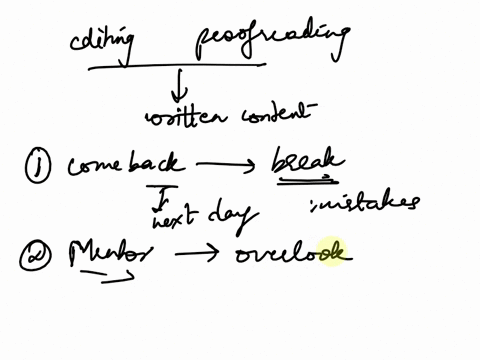 editing proofreading
written content
① come back → break
next day : mistakes
② Mentor → overlook